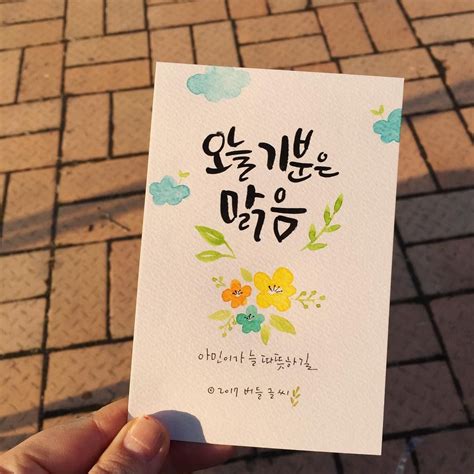 오늘 기분은
맑음
아민이가 늘 따뜻하길
© 2017 버들글씨